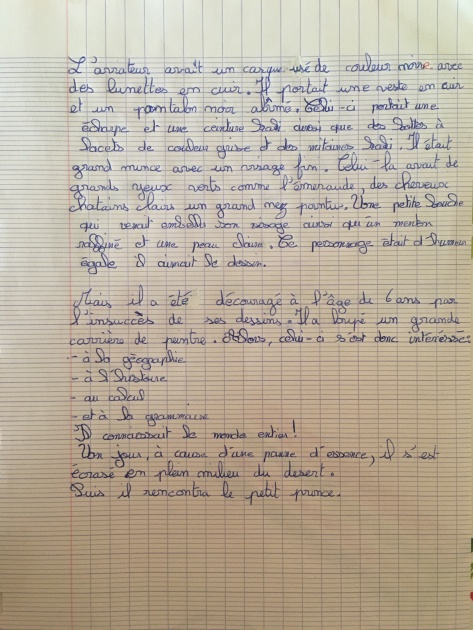 L'arrateur avait un casque usé de couleur noire avec
des lunettes en cuir. Il portait une veste en cuir
et un pantalon noir abîmé. Celui-ci portait une
écharpe et une ceinture kaki ainsi que des bottes à
lacets de couleur grise et des mitaines kaki. Il était
grand mince avec un visage fin. Celui-la avait de
grands yeux verts comme l'émeraude, des cheveux
chatains clairs un grand nez pointu. Une petite bouche
qui venait embellir son visage ainsi qu'un menton
raffiné et une peau claire. Ce personnage était d'humeur
égale il aimait le dessin.
Mais il a été découragé à l'âge de 6 ans par
l'insuccès de ses dessins. Il a loupé un grande
carrière de peintre. Alors, celui-ci s'est donc intéressé:
- à la géographie
- à l'histoire
- au calcul
- et à la grammaire
Il connaissait le monde entier!
Un jour, à cause d'une panne d'essence, il s'est
écrasé en plein milieu du desert.
Puis il rencontra le petit prince.